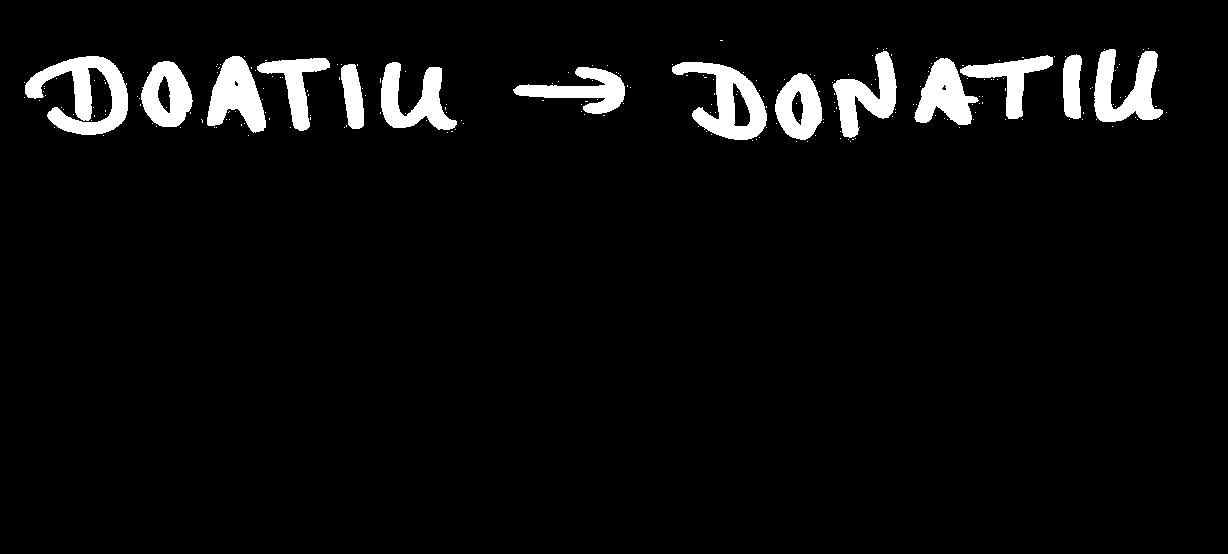 DOATIU → DONATIU